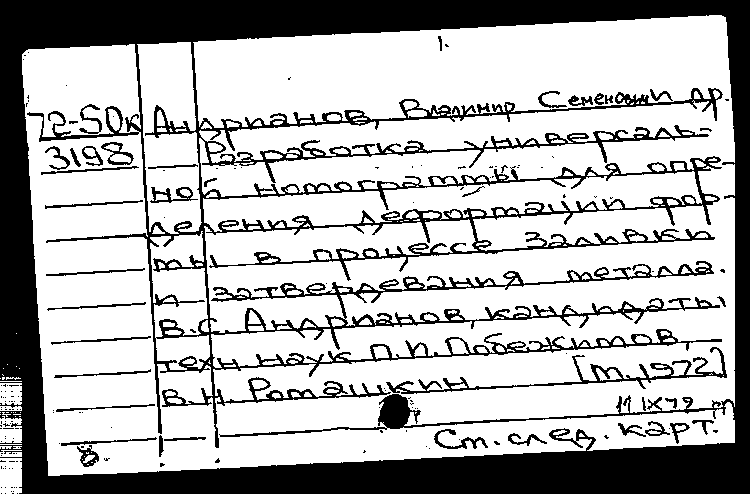 1.
72-50к Андрианов, Владимир Семенович и др.
3198 Разработка универсаль-
ной номограммы для опре-
деления деформации фор-
мы в процессе заливки
и затвердевания металла.
В.С. Андрианов, кандидаты
техн. наук П.И. Побежимов,
В.Н. Ромашкин. [М., 1972]
11 IX 79
8. См. след. карт.